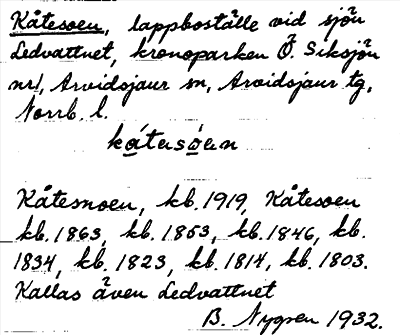 Kåtesoen, lappboställe vid sjön
Ledvattnet, kronoparken Ö. Siksjön
nr1, Arvidsjaur sn, Arvidsjaur tg,
Norrb. l.
kátesóen
Kåtesnoen, kb. 1919, Kåtesoen
kb. 1863, kb. 1853, kb. 1846, kb.
1834, kb. 1823, kb. 1814, kb. 1803.
Kallas även Ledvattnet
B. Nygren 1932.